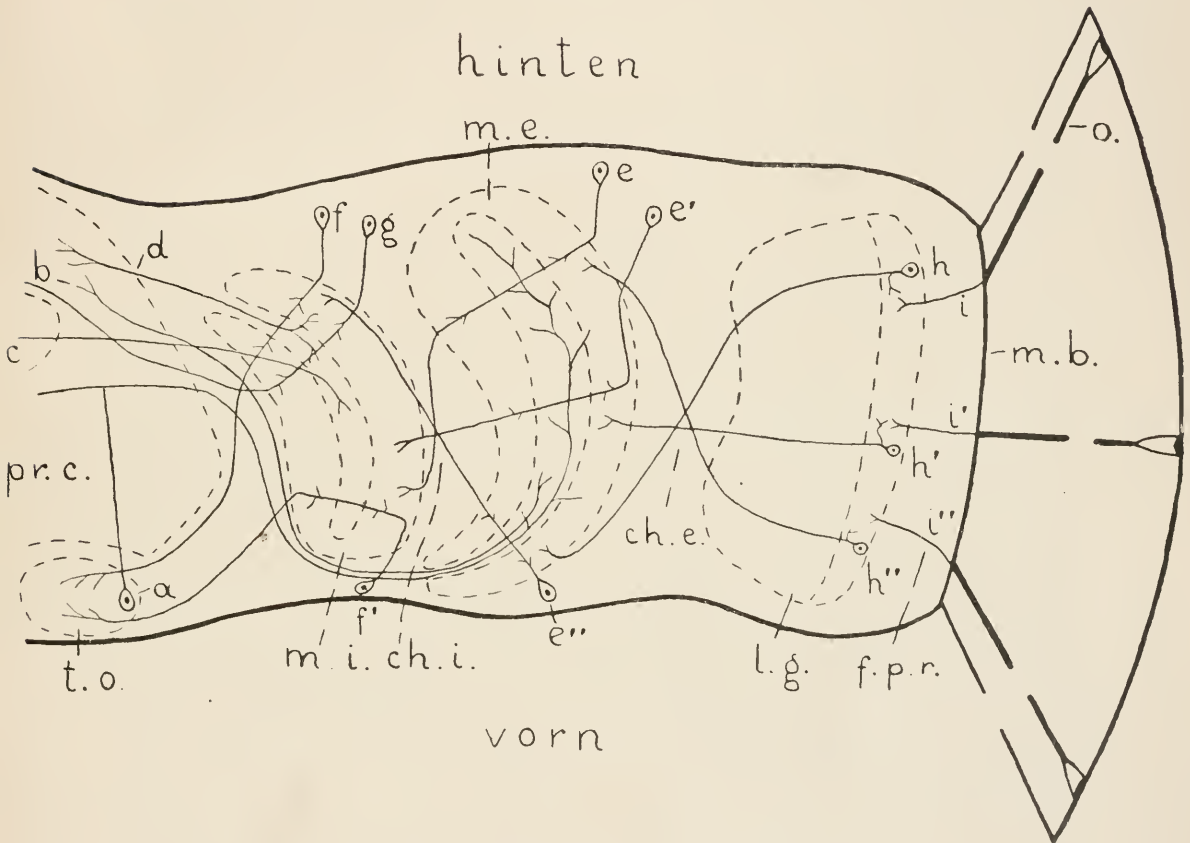 hinten
m. e.
o.
e
e'
f
g
d
b
h
i
m. b.
c
i'
h'
pr. c.
i''
ch. e.
h''
a
f'
e''
m. i. ch. i.
l. g. f. p. r.
t. o.
vorn